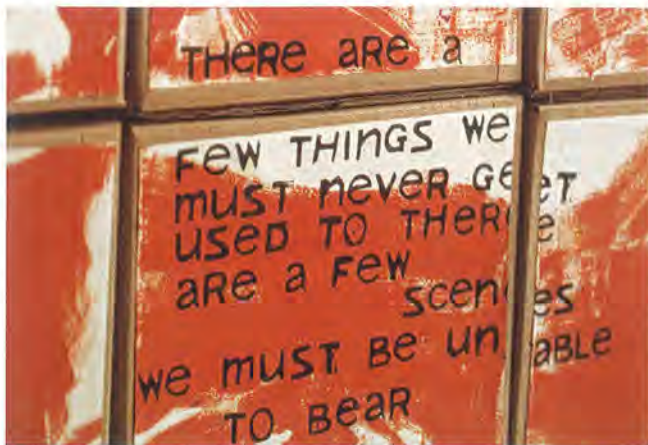 THERe aRe a
Few THinGS we
muST neveR GeT
useD TO THeRe
aRe a Few
sceneS
we muST Be unaBLe
TO BeaR